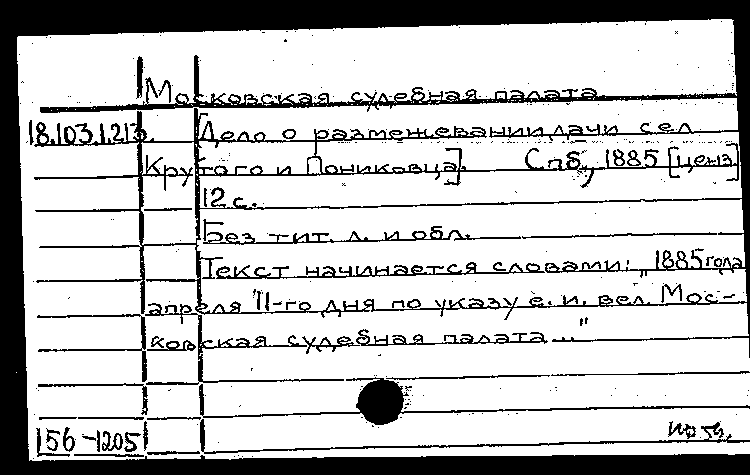 Московская судебная палата.
18.103.1.213. [Дело о размежевании дачи сел
Крутого и Пониковца]. Спб., 1885 [ценз]
12 с.
Без тит. л. и обл.
Текст начинается словами: „1885 года
апреля 11-го дня по указу е. и. вел. Мос-
ковская судебная палата..."
156-1205